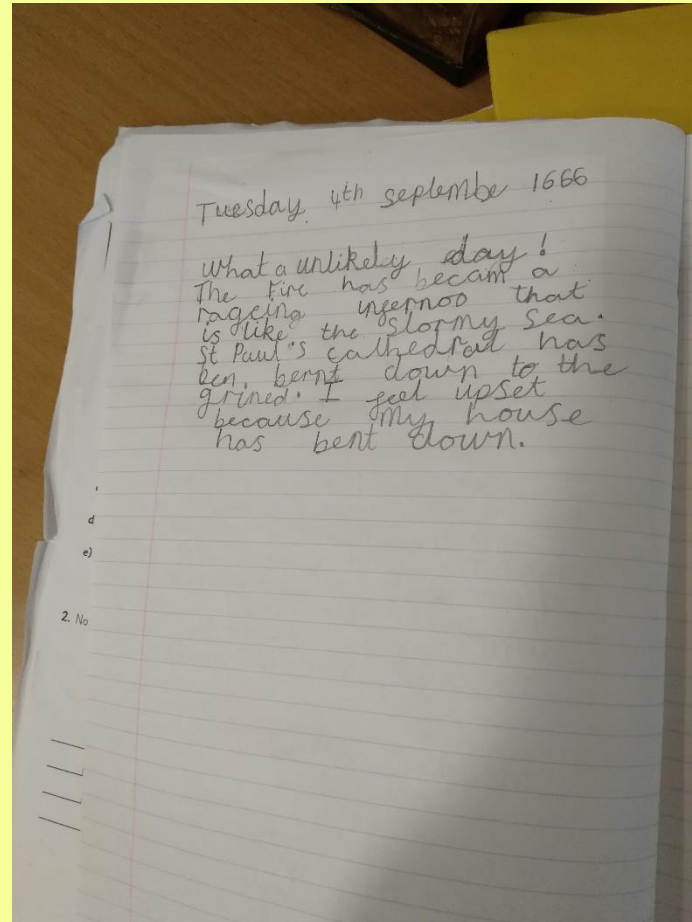 Tuesday 4th septembe 1666
What a unlikely day!
The Fire has becam a
rageing infernoo that
is like the stormy sea.
St Paul's cathedral has
ben bernt down to the
grined. I feel upset
because my house
has bent down.
d
e)
2. No